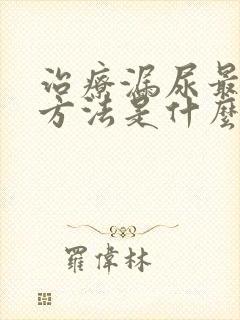 治療漏尿最
方法是什麼
羅偉林